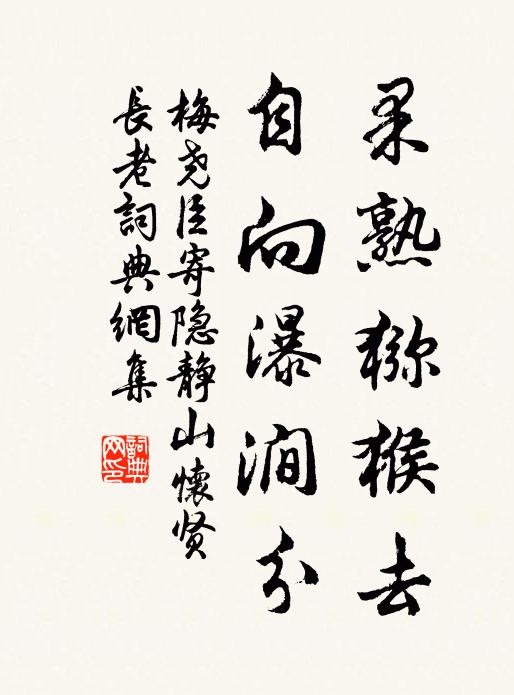 果熟猕猴去
自向瀑涧分
梅尧臣寄隐静山懷贤
長老詞典網集
詞典网印